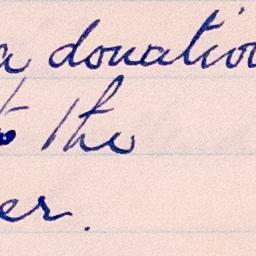 a donation
to the
er.